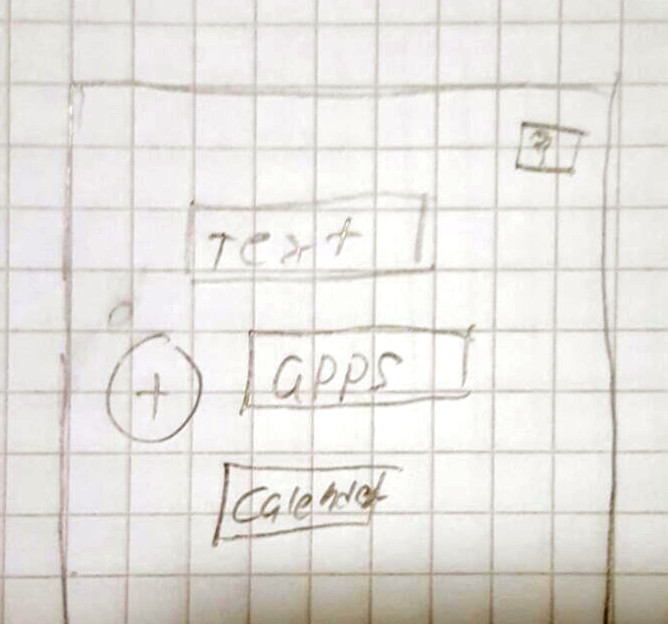 ?
Text
apps
+
Calender